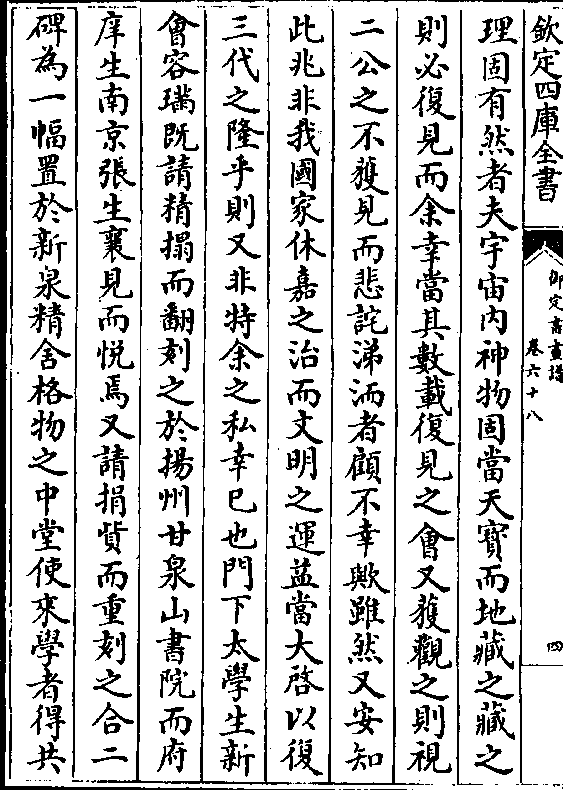 欽定四庫全書
御定書畫譜
卷六十八
四
理固有然者夫宇宙内神物固當天寳而地藏之藏之
則必復見而余幸當其數載復見之㑹又獲觀之則視
二公之不獲見而悲詫涕洏者顧不幸歟雖然又安知
此兆非我國家休嘉之治而文明之運益當大啓以復
三代之隆乎則又非特余之私幸已也門下太學生新
㑹容瑞既請精搨而翻刻之於揚州甘泉山書院而府
庠生南京張生襄見而悦焉又請捐貲而重刻之合二
碑為一幅置於新泉精舍格物之中堂使來學者得共